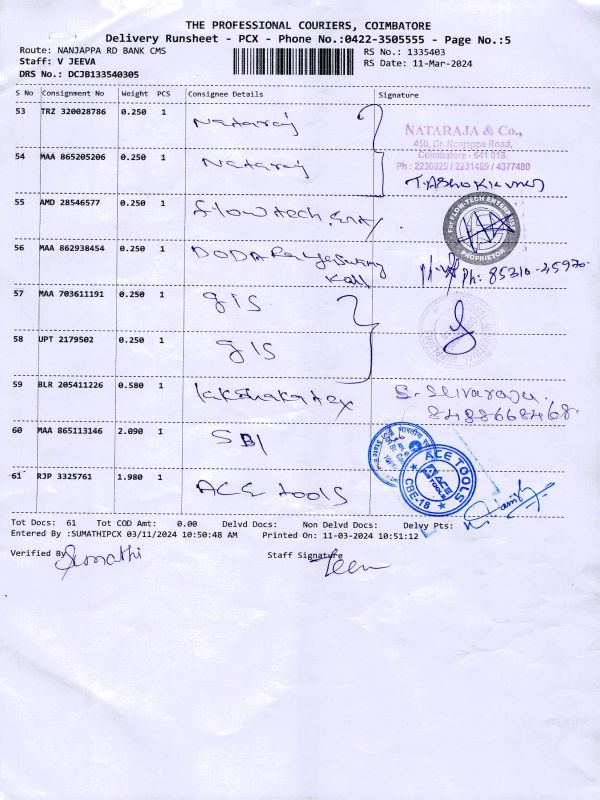 THE PROFESSIONAL COURIERS, COIMBATORE
Delivery Runsheet - PCX - Phone No.:0422-3505555 - Page No.:5
Route: NANJAPPA RD BANK CMS
RS No.: 1335403
Staff: V JEEVA
RS Date: 11-Mar-2024
DRS No.: DCJB133540305
S No Consignment No Weight PCS Consignee Details Signature
53 TRZ 320028786 0.250 1 Nataraj
NATARAJA & Co.,
450, Dr. Nanjappa Road,
Coimbatore - 641 018.
Ph : 2230825 / 2231489 / 4377480
54 MAA 865205206 0.250 1 Nataraj
T. ASHOK KUMAR
55 AMD 28546577 0.250 1 flow tech Ent
For FLOW-TECH ENTERPRISES
PROPRIETOR
56 MAA 862938454 0.250 1 DODDA
Ph: 85310-45970
57 MAA 703611191 0.250 1 GIS
58 UPT 2179502 0.250 1 GIS
59 BLR 205411226 0.580 1
S. Sivaraju
8488668468
60 MAA 865113146 2.090 1 SBI
61 RJP 3325761 1.980 1 ACE tools
ACE TOOLS
ACE TOOLS
CBE-18
Tot Docs: 61 Tot COD Amt: 0.00 Delvd Docs: Non Delvd Docs: Delvy Pts:
Entered By :SUMATHIPCX 03/11/2024 10:50:48 AM Printed On: 11-03-2024 10:51:12
Verified By Sumathi Staff Signature Jeeva